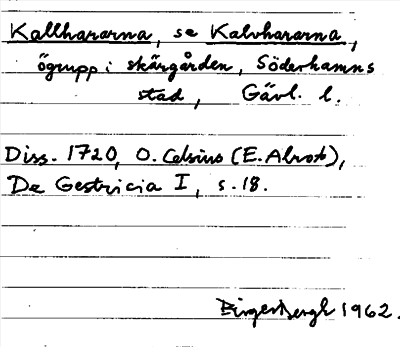 Kallhararna, se Kalvhararna,
ögrupp i skärgården, Söderhamns
stad, Gävl. l.
Diss. 1720, O. Celsius (E. Alrot),
De Gestricia I, s. 18.
Birger Bergh 1962.